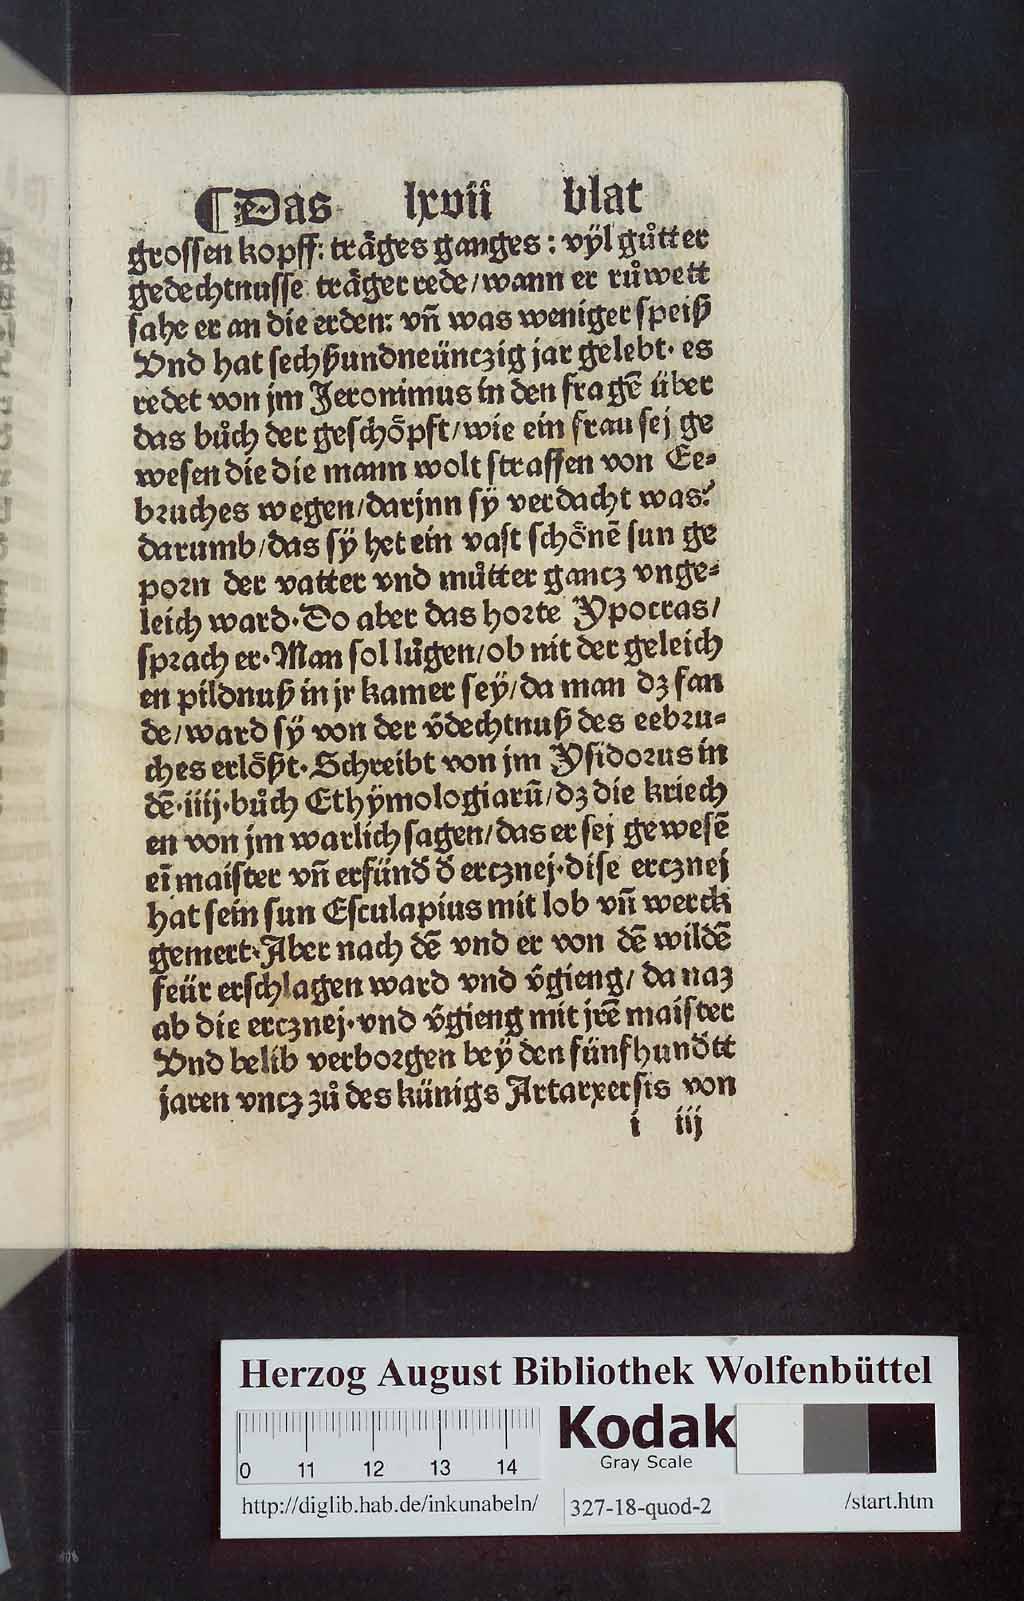 ¶Das lxvii blat
grossen kopff: träges ganges: vÿl gůtter
gedechtnusse träger rede/wann er růwett
sahe er an die erden: vn̄ was weniger speiß
Vnd hat sechßundneünczig jar gelebt· es
redet von jm Jeronimus in den fragē über
das bůch der geschöpft/wie ein frau sej ge
wesen die die mann wolt straffen von Ee⸗
bruches wegen/darjnn sÿ verdacht was?
darumb/das sÿ het ein vast schönē sun ge
porn der vatter vnd můtter gancz vnge⸗
leich ward·Do aber das horte Ypocras/
sprach er·Man sol lůgen/ob nit der geleich
en pildnuß in jr kamer sey/da man dz fan
de/ward sÿ von der v̄dechtnuß des eebru⸗
ches erlößt·Schreibt von jm Ysidorus in
dē·iiij·bůch Ethÿmologiarū/dz die kriech
en von jm warlich sagen/das er sej gewesē
eī maister vn̄ erfünd̄ d̄ ercznej·dise ercznej
hat sein sun Esculapius mit lob vn̄ werck
gemert·Aber nach dē vnd er von dē wildē
feür erschlagen ward vnd v̄gieng/da naz
ab die ercznej·vnd v̄gieng mit jrē maister
Vnd belib verborgen beÿ den fünfhund̄tt
jaren vncz zů des künigs Artarxersis von
i iij
Herzog August Bibliothek Wolfenbüttel
Kodak
Gray Scale
0 11 12 13 14
http://diglib.hab.de/inkunabeln/ 327-18-quod-2 /start.htm